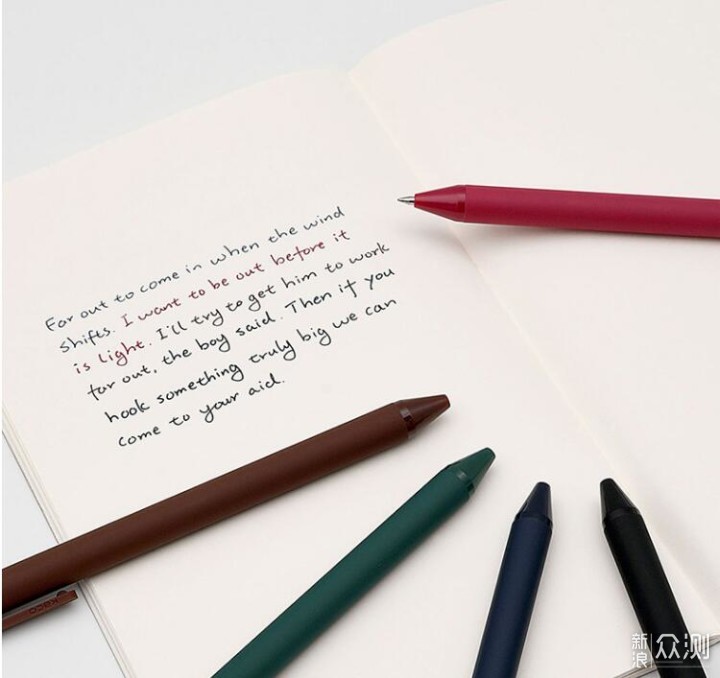 Far out to come in when the wind
shifts. I want to be out before it
is light. I'll try to get him to work
far out, the boy said. Then if you
hook something truly big we can
come to your aid.
KACO
新浪 众测